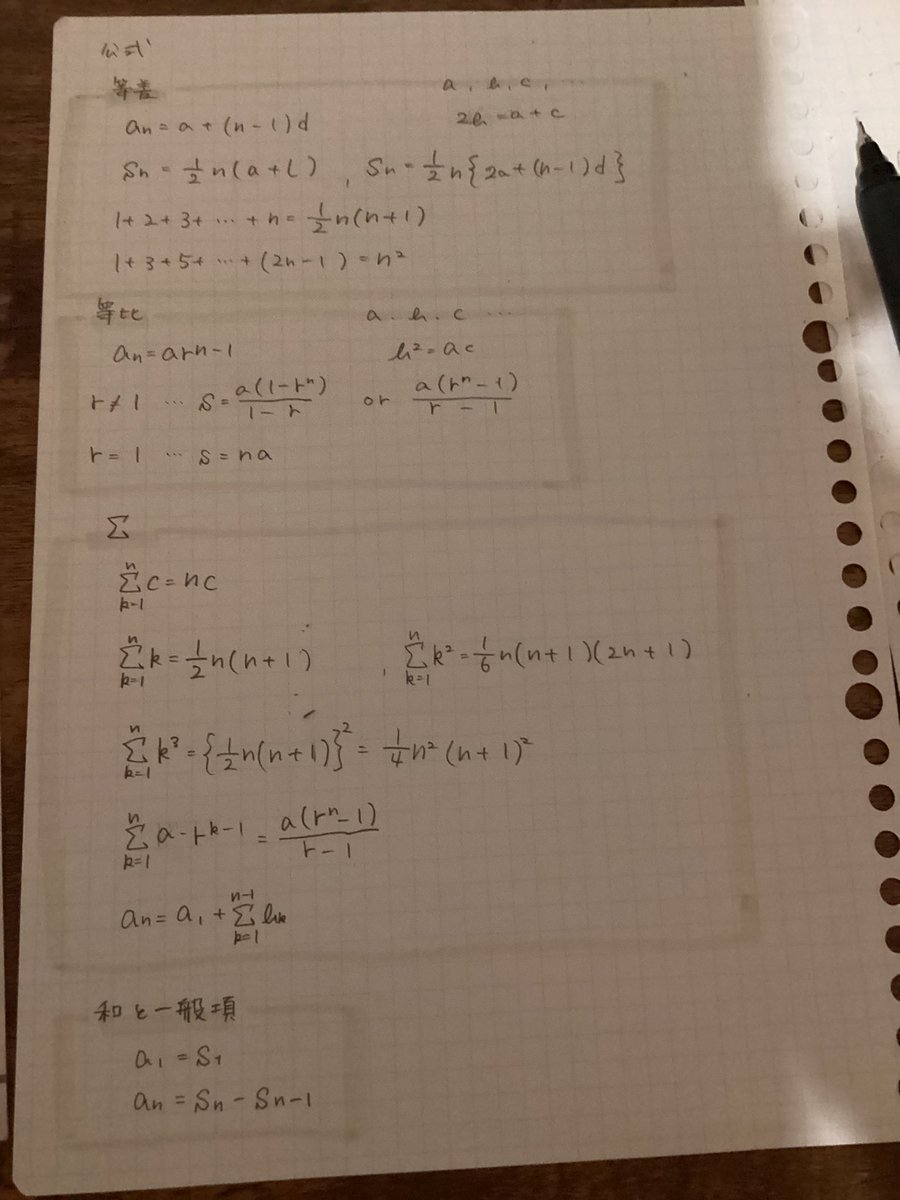 公式
等差 a, b, c, …
2b = a + c
an = a + (n - 1) d
Sn = 1/2 n(a + l) , Sn = 1/2 n{2a + (n - 1) d}
1 + 2 + 3 + … + n = 1/2 n(n + 1)
1 + 3 + 5 + … + (2n - 1) = n²
等比 a. b. c …
an = arn-1 b² = ac
r ≠ 1 … S = a(1 - rⁿ)/1 - r or a(rⁿ - 1)/r - 1
r = 1 … S = na
Σ
n Σ k=1 c = nc
n Σ k=1 k = 1/2 n(n + 1) , n Σ k=1 k² = 1/6 n(n + 1)(2n + 1)
n Σ k=1 k³ = {1/2 n(n + 1)}² = 1/4 n² (n + 1)²
n Σ k=1 a・r^k-1 = a(rⁿ - 1)/r - 1
an = a₁ + n-1 Σ k=1 bk
和と一般項
a₁ = S₁
an = Sn - Sn-1